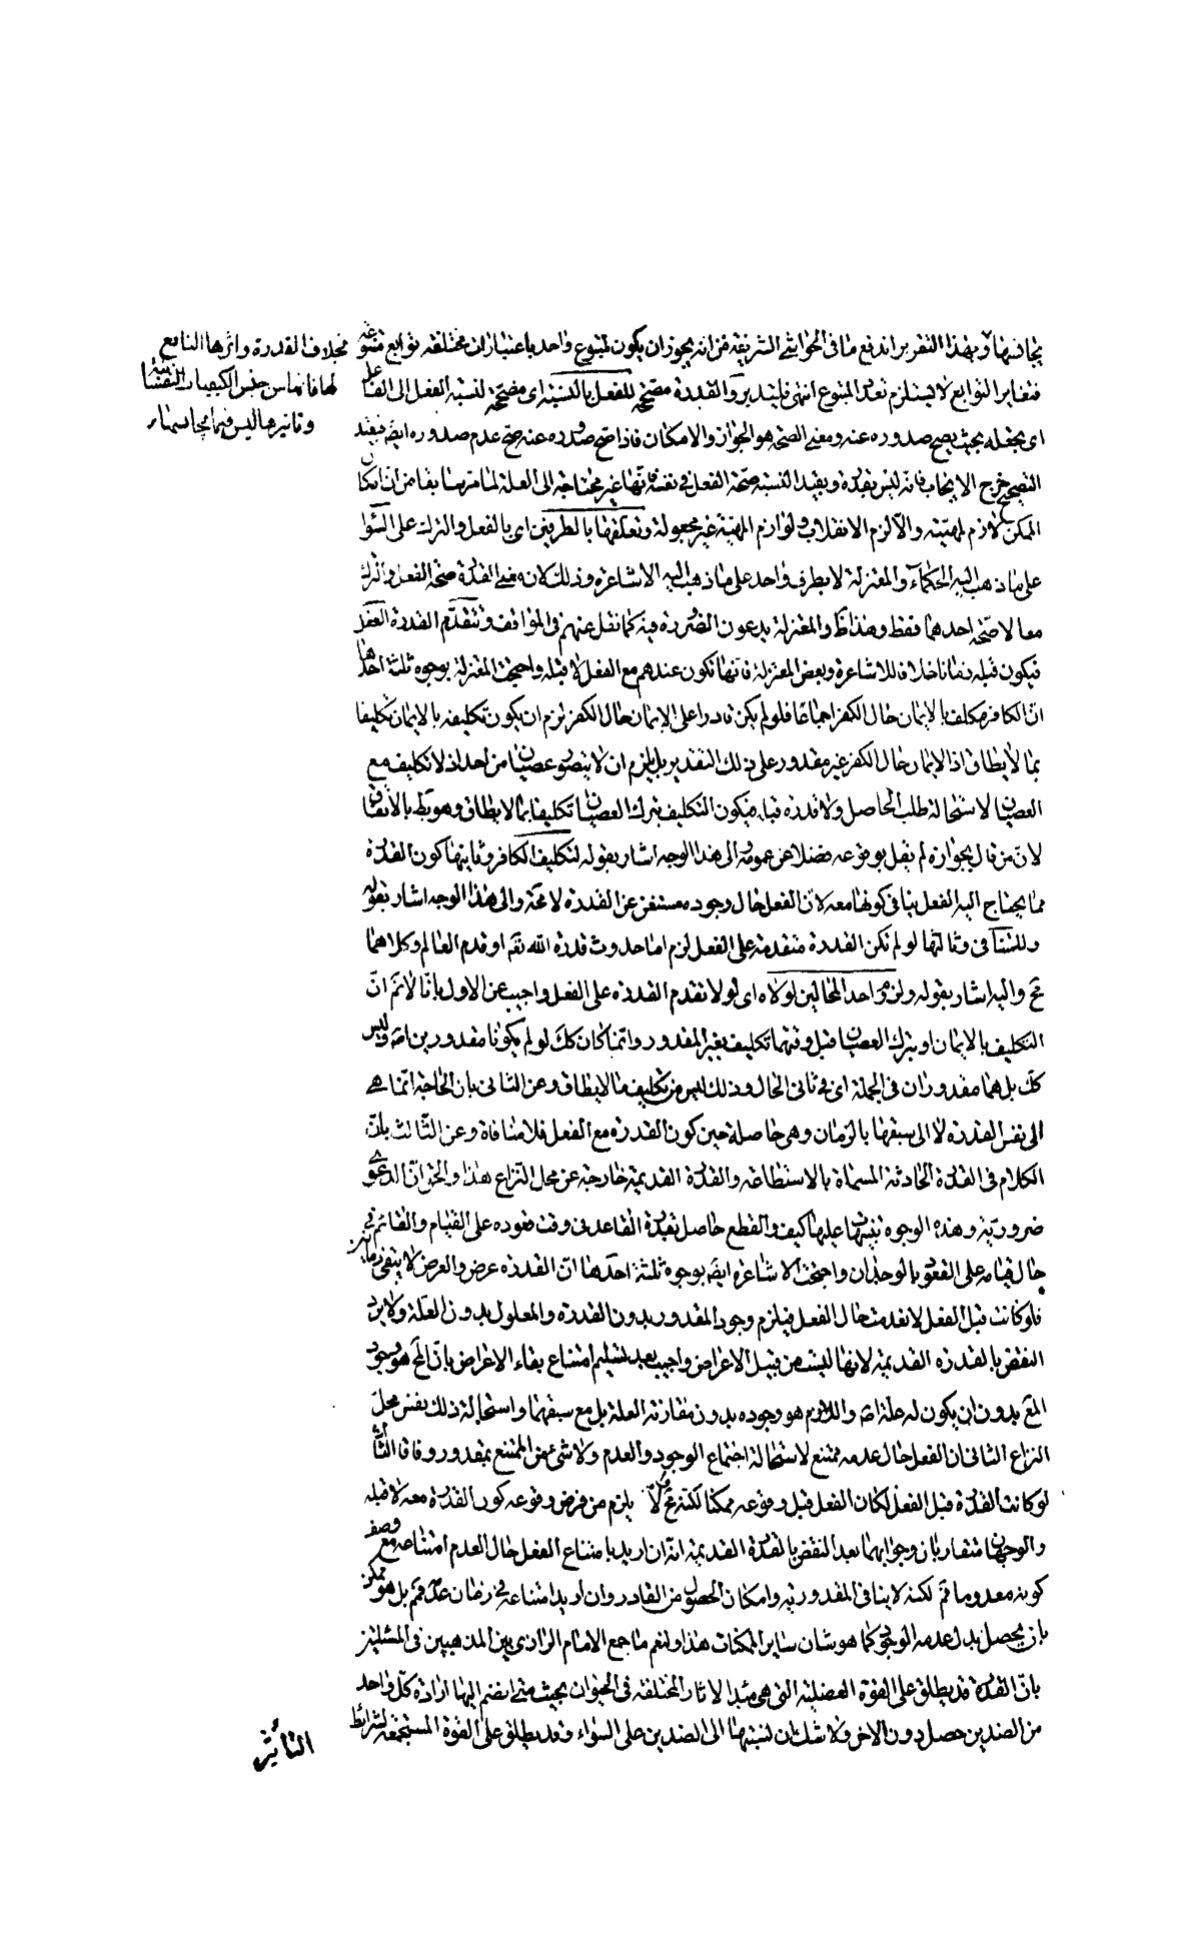 يجانسها وبهذا التقرير اندفع ما في الحواشي الشريفة من انه يجوز ان يكون لمتبوع واحد باعتبارات مختلفة توابع متنوعة
فتغاير التوابع لا يستلزم تعدد المتبوع انتهى فليتدبر والقدرة مصححة للفعل بالنسبة اى مصححة لنسبة الفعل الى الفاعل
اى يجعله بحيث يصح صدوره عنه ومعنى الصحة هو الجواز والامكان فاذا صح صدوره عنه صح عدم صدوره ايضا فبقيد
التصحيح خرج الايجاب فانه ليس بقدرة وبقيد النسبة صحة الفعل في نفسه فانها غير محتاجة الى العلة لما مر سابقا من ان امكان
الممكن لازم لمهيته والا لزم الانقلاب ولوازم المهية غير مجعولة وتعلقها بالطرفين اى بالفعل والترك على السواء
على ما ذهب اليه الحكماء والمعتزلة لا بطرف واحد على ما ذهب اليه الاشاعرة وذلك لان معنى القدرة صحة الفعل والترك
معا لا صحة احدهما فقط وهذا ظ والمعتزلة يدعون الضرورة فيه كما نقل عنهم في المواقف وتتقدم القدرة الفعل
فيكون قبله زمانا خلافا للاشاعرة وبعض المعتزلة فانها تكون عندهم مع الفعل لا قبله واحتجت المعتزلة بوجوه ثلثة احدها
ان الكافر مكلف بالايمان حال الكفر اجماعا فلو لم يكن قادرا على الايمان حال الكفر لزم ان يكون تكليفه بالايمان تكليفا
بما لا يطاق اذ الايمان حال الكفر غير مقدور على ذلك التقدير بل يلزم ان لا يتصور عصيان من احد اذ لا تكليف مع
العصيان لاستحالة طلب الحاصل ولا قدرة قبله فيكون التكليف بترك العصيان تكليفا بما لا يطاق وهو بط بالاتفاق
لان من قال بجوازه لم يقل بوقوعه فضلا عن عمومه الى هذا الوجه اشار بقوله لتكليف الكافر وثانيها كون القدرة
مما يحتاج اليه الفعل ينافي كونها معه لان الفعل حال وجوده مستغن عن القدرة لا محة والى هذا الوجه اشار بقوله
وللتنافى وثالثها لو لم تكن القدرة متقدمة على الفعل لزم اما حدوث قدرة الله تع او قدم العالم وكلاهما
مح واليه اشار بقوله ولزوم احد المحالين لولاه اى لولا تقدم القدرة على الفعل واجيب عن الاول بانا لا نم ان
التكليف بالايمان او بترك العصيان قبل وقتهما تكليف بغير المقدور وانما كان كك لو لم يكونا مقدورين اصه وليس
كك بل هما مقدوران في الجملة اى في ثانى الحال وذلك ليس من تكليف ما لا يطاق وعن الثانى بان الحاجة انما هي
الى نفس القدرة لا الى سبقها بالزمان وهي حاصلة حين كون القدرة مع الفعل فلا منافاة وعن الثالث بان
الكلام في القدرة الحادثة المسماة بالاستطاعة والقدرة القديمة خارجة عن محل النزاع هذا والحق ان الدعوى
ضرورية وهذه الوجوه تنبيهات عليها كيف والقطع حاصل بقدرة القاعد في وقت قعوده على القيام والقائم في
حال قيامه على القعود بالوجدان واحتجت الاشاعرة ايضه بوجوه ثلثة احدها ان القدرة عرض والعرض لا يبقى زمانين
فلو كانت قبل الفعل لانعدمت حال الفعل فيلزم وجود المقدور بدون القدرة والمعلول بدون العلة ولا يرد
النقض بالقدرة القديمة لانها ليست من قبيل الاعراض واجيب بعد تسليم امتناع بقاء الاعراض بان المح هو وجود
المع بدون ان يكون له علة اصه واللازم هو وجوده بدون مقارنة العلة بل مع سبقها واستحالة ذلك نفس محل
النزاع الثانى ان الفعل حال عدمه ممتنع لاستحالة اجتماع الوجود والعدم ولا شئ من الممتنع بمقدور وفاقا الثالث
لو كانت القدرة قبل الفعل لكان الفعل قبل وقوعه ممكنا لكنه مح لانه يلزم من فرض وقوعه كون القدرة معه لا قبله
والوجهان متقاربان وجوابهما بعد النقض بالقدرة القديمة انه ان اريد بامتناع الفعل حال العدم امتناعه مع وصف
كونه معدوما فم لكنه لا ينافي المقدورية وامكان الحصول من القادر وان اريد امتناعه في زمان عدمه فمم بل هو ممكن
بان يحصل بدل عدمه الوجود كما هو شان ساير الممكنات هذا ولنعم ما جمع الامام الرازى بين المذهبين في المسئلتين
بان القدرة قد يطلق على القوة العضلية التى هي مبدا الاثار المختلفة في الحيوان بحيث متى انضم اليها ارادة كل واحد
من الضدين حصل دون الاخر ولا شك ان نسبتها الى الضدين على السواء وقد يطلق على القوة المستجمعة لشرائط
التأثير
بخلاف القدرة واثرها التابع
لها فانها من جنس الكيفيات النفسانية
وتاثيرها ليس فيما يجانسها